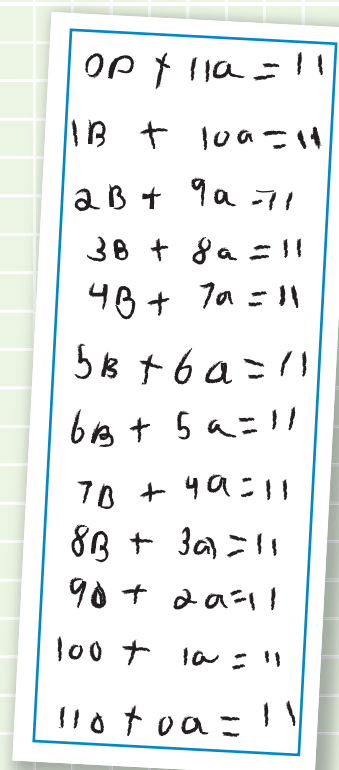 0B + 11a = 11
1B + 10a = 11
2B + 9a = 11
3B + 8a = 11
4B + 7a = 11
5B + 6a = 11
6B + 5a = 11
7B + 4a = 11
8B + 3a = 11
9B + 2a = 11
10B + 1a = 11
11B + 0a = 11